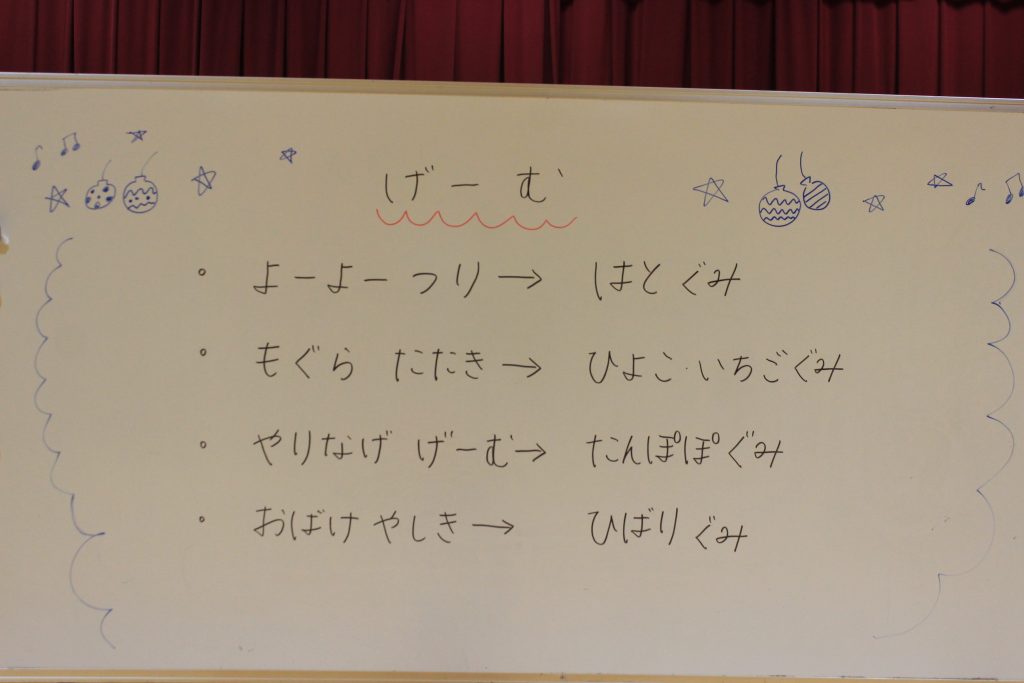 げーむ
。 よーよー つり → はと ぐみ
。 もぐら たたき → ひよこ・いちごぐみ
。 やりなげ げーむ → たんぽぽ ぐみ
。 おばけ やしき → ひばり ぐみ